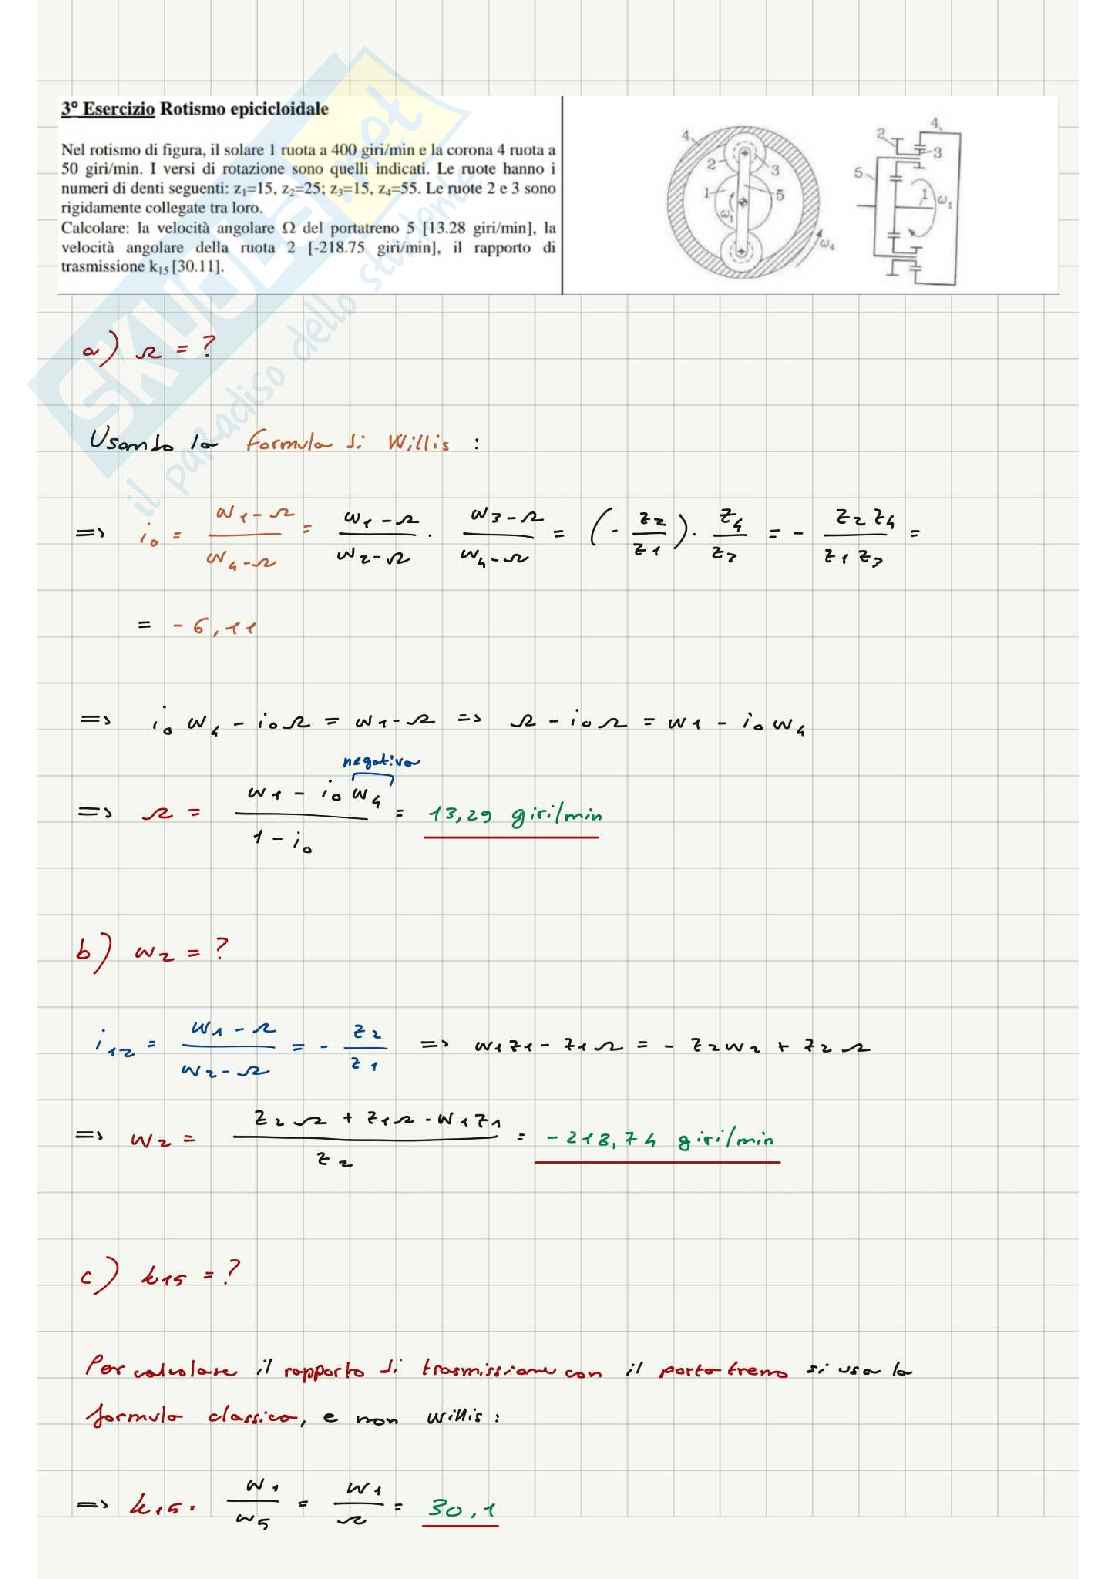 3° Esercizio Rotismo epicicloidale
Nel rotismo di figura, il solare 1 ruota a 400 giri/min e la corona 4 ruota a
50 giri/min. I versi di rotazione sono quelli indicati. Le ruote hanno i
numeri di denti seguenti: z₁=15, z₂=25; z₃=15, z₄=55. Le ruote 2 e 3 sono
rigidamente collegate tra loro.
Calcolare: la velocità angolare Ω del portatreno 5 [13.28 giri/min], la
velocità angolare della ruota 2 [-218.75 giri/min], il rapporto di
trasmissione k₁₅ [30.11].
4 2 1 3 5 ω₁ ω₄
2 4 3 5 1 ω₁
SKUOLA.net
il paradiso dello studente
a) Ω = ?
Usando la formula di Willis :
=> i₀ = (ω₁ - Ω)/(ω₄ - Ω) = (ω₁ - Ω)/(ω₂ - Ω) · (ω₃ - Ω)/(ω₄ - Ω) = (- z₂/z₁) · z₄/z₃ = - z₂z₄/z₁z₃ =
= - 6,11
=> i₀ω₄ - i₀Ω = ω₁ - Ω => Ω - i₀Ω = ω₁ - i₀ω₄
negativa
=> Ω = (ω₁ - i₀ω₄)/(1 - i₀) = 13,29 giri/min
b) ω₂ = ?
i₁₂ = (ω₁ - Ω)/(ω₂ - Ω) = - z₂/z₁ => ω₁z₁ - z₁Ω = - z₂ω₂ + z₂Ω
=> ω₂ = (z₂Ω + z₁Ω - ω₁z₁)/z₂ = - 218,74 giri/min
c) k₁₅ = ?
Per calcolare il rapporto di trasmissione con il porta treno si usa la
formula classica, e non Willis :
=> k₁₅ = ω₁/ω₅ = ω₁/Ω = 30,1